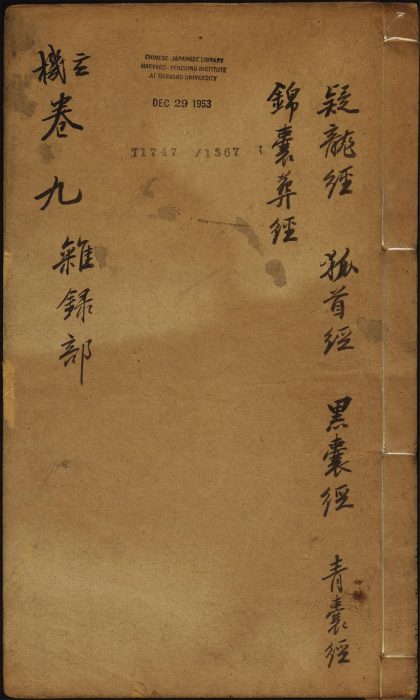 疑龍經 狐首經 黑囊經 青囊經
錦囊葬經
CHINESE-JAPANESE LIBRARY
HARVARD-YENCHING INSTITUTE
AT HARVARD UNIVERSITY
DEC 29 1953
T1747 /1367
玄機 卷九 雜録部